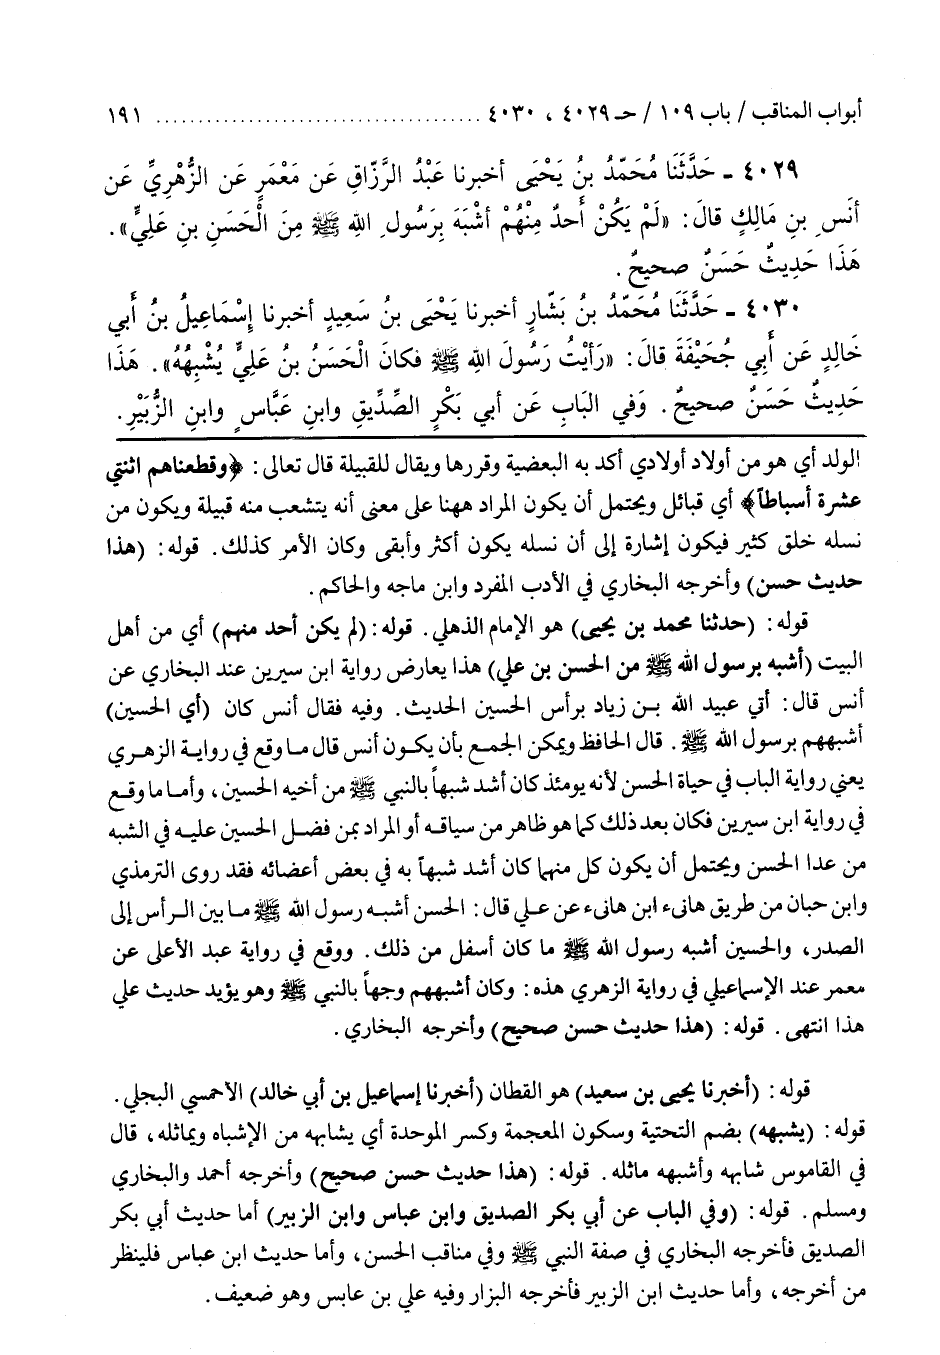 أبواب المناقب / باب ١٠٩ / حـ ٤٠٢٩ ، ٤٠٣٠ ...................................... ١٩١
٤٠٢٩ ـ حَدَّثَنَا مُحَمّدُ بنُ يَحْيَى أخبرنا عَبْدُ الرَّزّاقِ عَن مَعْمَرٍ عَن الزُّهْرِيِّ عَن
أنَسِ بنِ مَالِكٍ قالَ: «لَمْ يَكُنْ أَحدٌ مِنْهُمْ أشْبَهَ بِرَسُولِ اللهِ ﷺ مِنَ الْحَسَنِ بنِ عَلِيٍّ».
هَذَا حَدِيثٌ حَسَنٌ صحيحٌ.
٤٠٣٠ ـ حَدَّثَنَا مُحَمّدُ بنُ بَشّارٍ أخبرنا يَحْيَى بنُ سَعِيدٍ أخبرنا إسْمَاعِيلُ بنُ أَبي
خَالِدٍ عَن أَبي جُحَيْفَةَ قالَ: «رَأيْتُ رَسُولَ اللهِ ﷺ فكانَ الْحَسَنُ بنُ عَلِيٍّ يُشْبِهُهُ». هَذَا
حَدِيثٌ حَسَنٌ صحيحٌ. وَفي البَابِ عَن أبي بَكْرٍ الصِّدِّيقِ وابنِ عَبَّاسٍ وابنِ الزُّبَيْرِ.
الولد أي هو من أولاد أولادي أكد به البعضية وقررها ويقال للقبيلة قال تعالى: ﴿وقطعناهم اثنتي
عشرة أسباطاً﴾ أي قبائل ويحتمل أن يكون المراد ههنا على معنى أنه يتشعب منه قبيلة ويكون من
نسله خلق كثير فيكون إشارة إلى أن نسله يكون أكثر وأبقى وكان الأمر كذلك. قوله: (هذا
حديث حسن) وأخرجه البخاري في الأدب المفرد وابن ماجه والحاكم.
قوله: (حدثنا محمد بن يحيى) هو الإمام الذهلي. قوله: (لم يكن أحد منهم) أي من أهل
البيت (أشبه برسول الله ﷺ من الحسن بن علي) هذا يعارض رواية ابن سيرين عند البخاري عن
أنس قال: أتي عبيد الله بن زياد برأس الحسين الحديث. وفيه فقال أنس كان (أي الحسين)
أشبههم برسول الله ﷺ. قال الحافظ ويمكن الجمع بأن يكون أنس قال ما وقع في رواية الزهري
يعني رواية الباب في حياة الحسن لأنه يومئذ كان أشد شبهاً بالنبي ﷺ من أخيه الحسين، وأما ما وقع
في رواية ابن سيرين فكان بعد ذلك كما هو ظاهر من سياقه أو المراد بمن فضل الحسين عليه في الشبه
من عدا الحسن ويحتمل أن يكون كل منهما كان أشد شبهاً به في بعض أعضائه فقد روى الترمذي
وابن حبان من طريق هانىء ابن هانىء عن علي قال: الحسن أشبه رسول الله ﷺ ما بين الرأس إلى
الصدر، والحسين أشبه رسول الله ﷺ ما كان أسفل من ذلك. ووقع في رواية عبد الأعلى عن
معمر عند الإسماعيلي في رواية الزهري هذه: وكان أشبههم وجهاً بالنبي ﷺ وهو يؤيد حديث علي
هذا انتهى. قوله: (هذا حديث حسن صحيح) وأخرجه البخاري.
قوله: (أخبرنا يحيى بن سعيد) هو القطان (أخبرنا إسماعيل بن أبي خالد) الأحمسي البجلي.
قوله: (يشبهه) بضم التحتية وسكون المعجمة وكسر الموحدة أي يشابهه من الإشباه ويماثله، قال
في القاموس شابهه وأشبهه ماثله. قوله: (هذا حديث حسن صحيح) وأخرجه أحمد والبخاري
ومسلم. قوله: (وفي الباب عن أبي بكر الصديق وابن عباس وابن الزبير) أما حديث أبي بكر
الصديق فأخرجه البخاري في صفة النبي ﷺ وفي مناقب الحسن، وأما حديث ابن عباس فلينظر
من أخرجه، وأما حديث ابن الزبير فأخرجه البزار وفيه علي بن عابس وهو ضعيف.